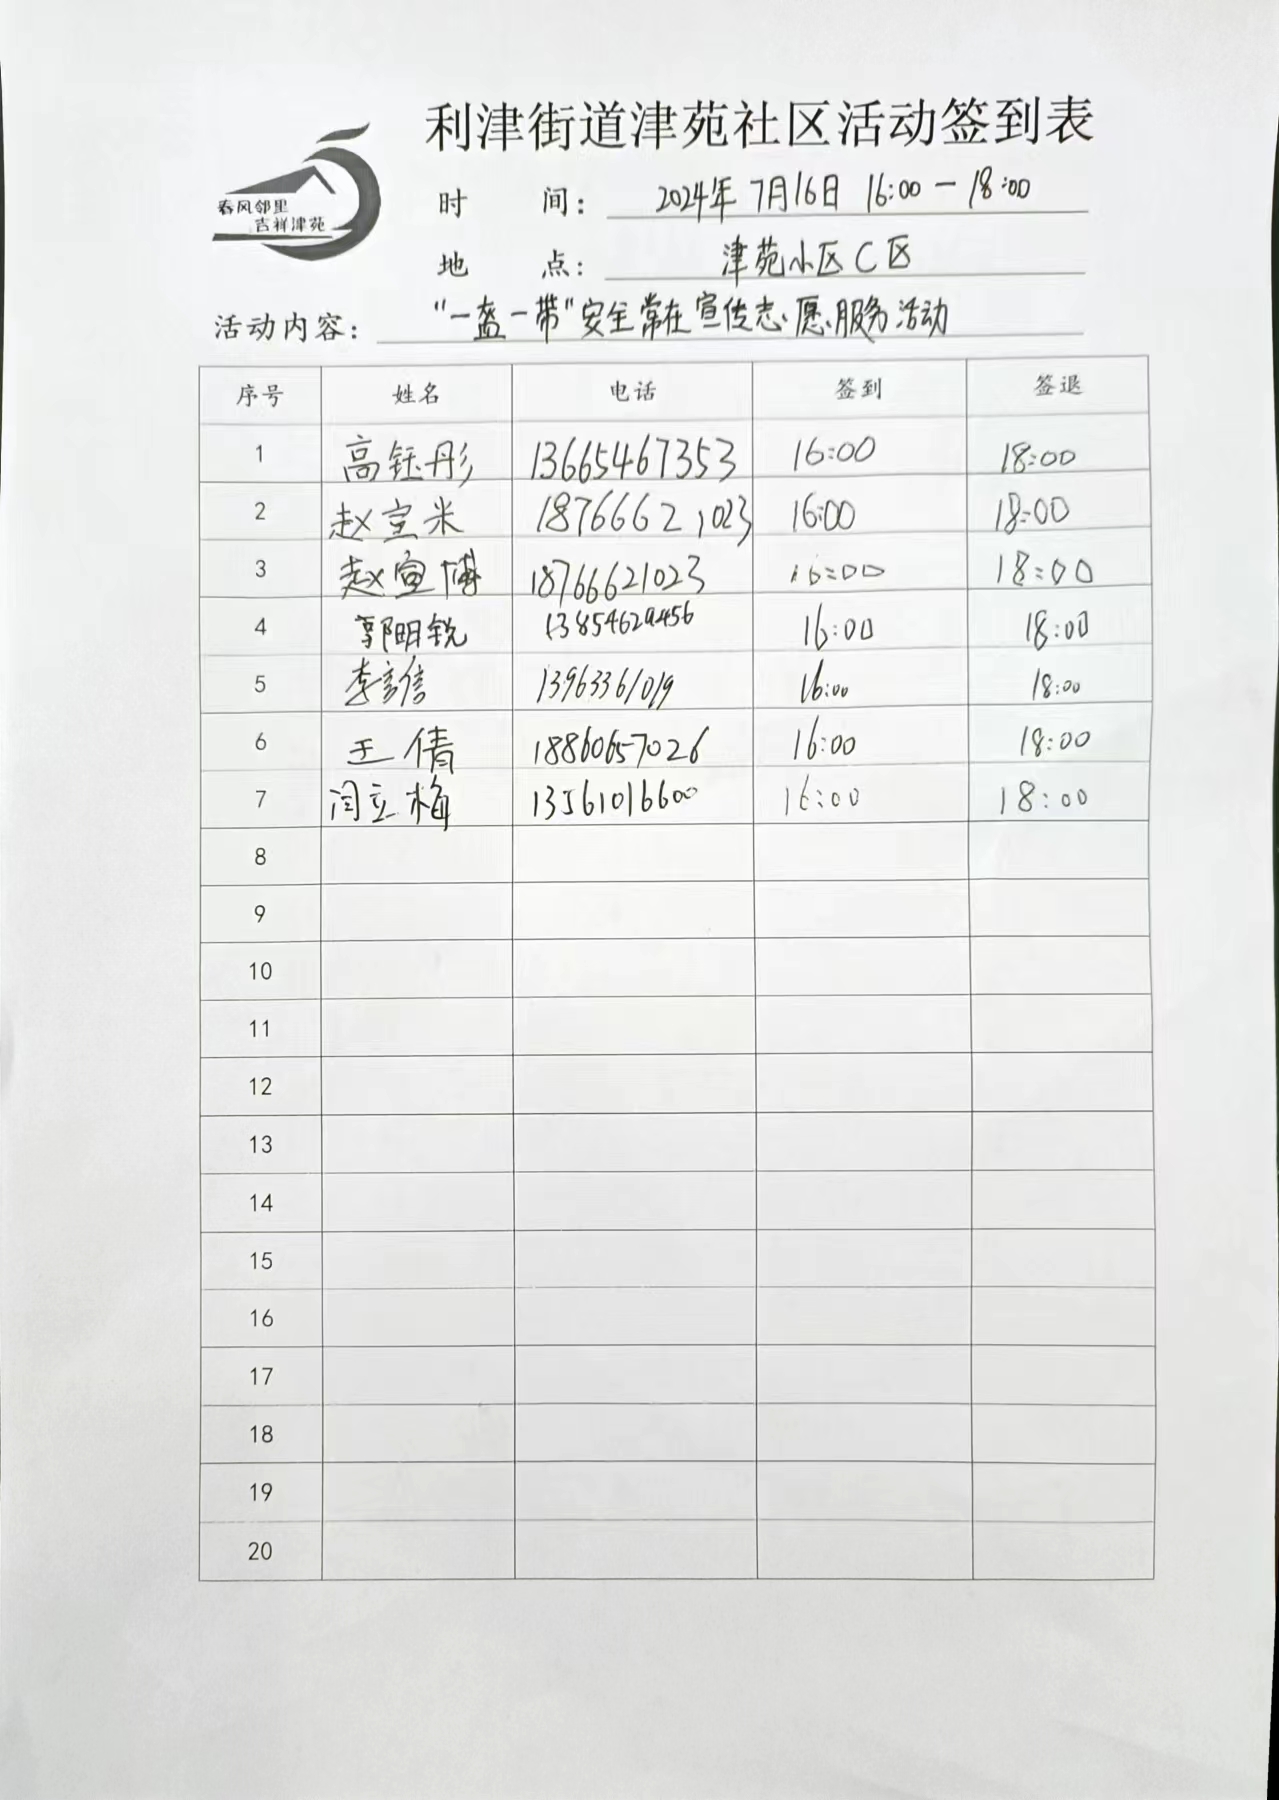 利津街道津苑社区活动签到表
春风邻里
吉祥津苑
时 间: 2024年7月16日 16:00-18:00
地 点: 津苑小区C区
活动内容: "一盔一带"安全常在宣传志愿服务活动
序号 姓名 电话 签到 签退
1 高钰彤 13665467353 16:00 18:00
2 赵宣米 18766621023 16:00 18:00
3 赵宣博 18766621023 16:00 18:00
4 郭明锐 13854629456 16:00 18:00
5 李彦信 13963361019 16:00 18:00
6 王倩 18860657026 16:00 18:00
7 闫立梅 13561016600 16:00 18:00
8
9
10
11
12
13
14
15
16
17
18
19
20